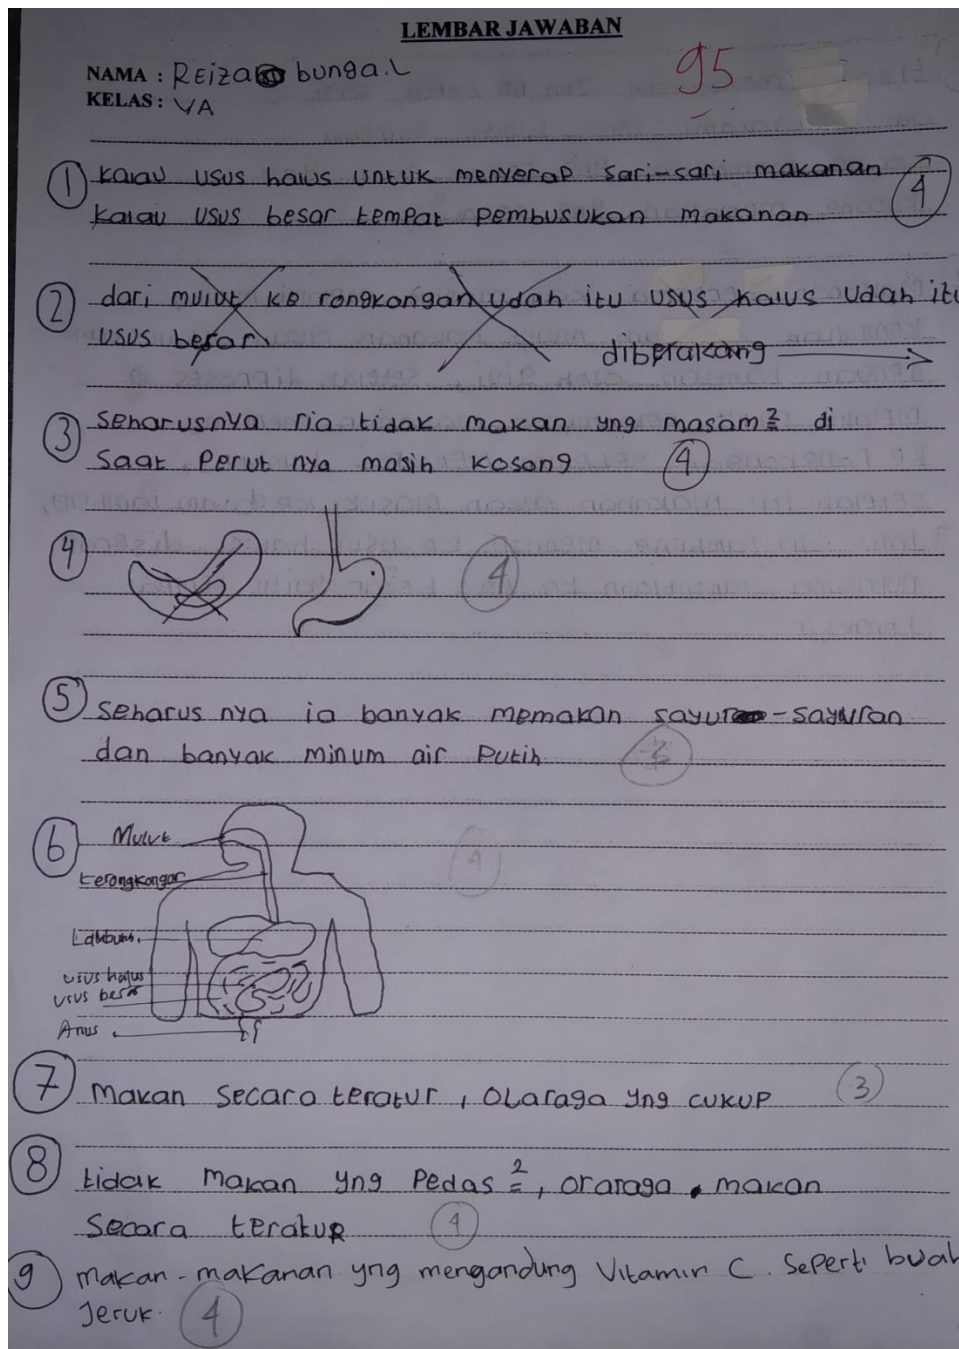 LEMBAR JAWABAN
NAMA : REiza bunga.L
95
KELAS : VA
1 kalau usus halus untuk menyerap sari-sari makanan 4
kalau usus besar tempat pembusukan makanan
2 dari mulut ke rongkongan udah itu usus halus udah itu
usus besar
diberakang
3 seharusnya ria tidak makan yng masam2 di
saat perut nya masih kosong 4
4 4
5 seharus nya ia banyak memakan sayur-sayuran
dan banyak minum air putih
6 Mulut 4
kerongkongan
Lambung
usus halus
usus besar
Anus
7 makan secara teratur, olaraga yng cukup 3
8 tidak makan yng pedas2, oraraga, makan
secara teratur 4
9 makan-makanan yng mengandung Vitamin C. seperti buah
Jeruk. 4